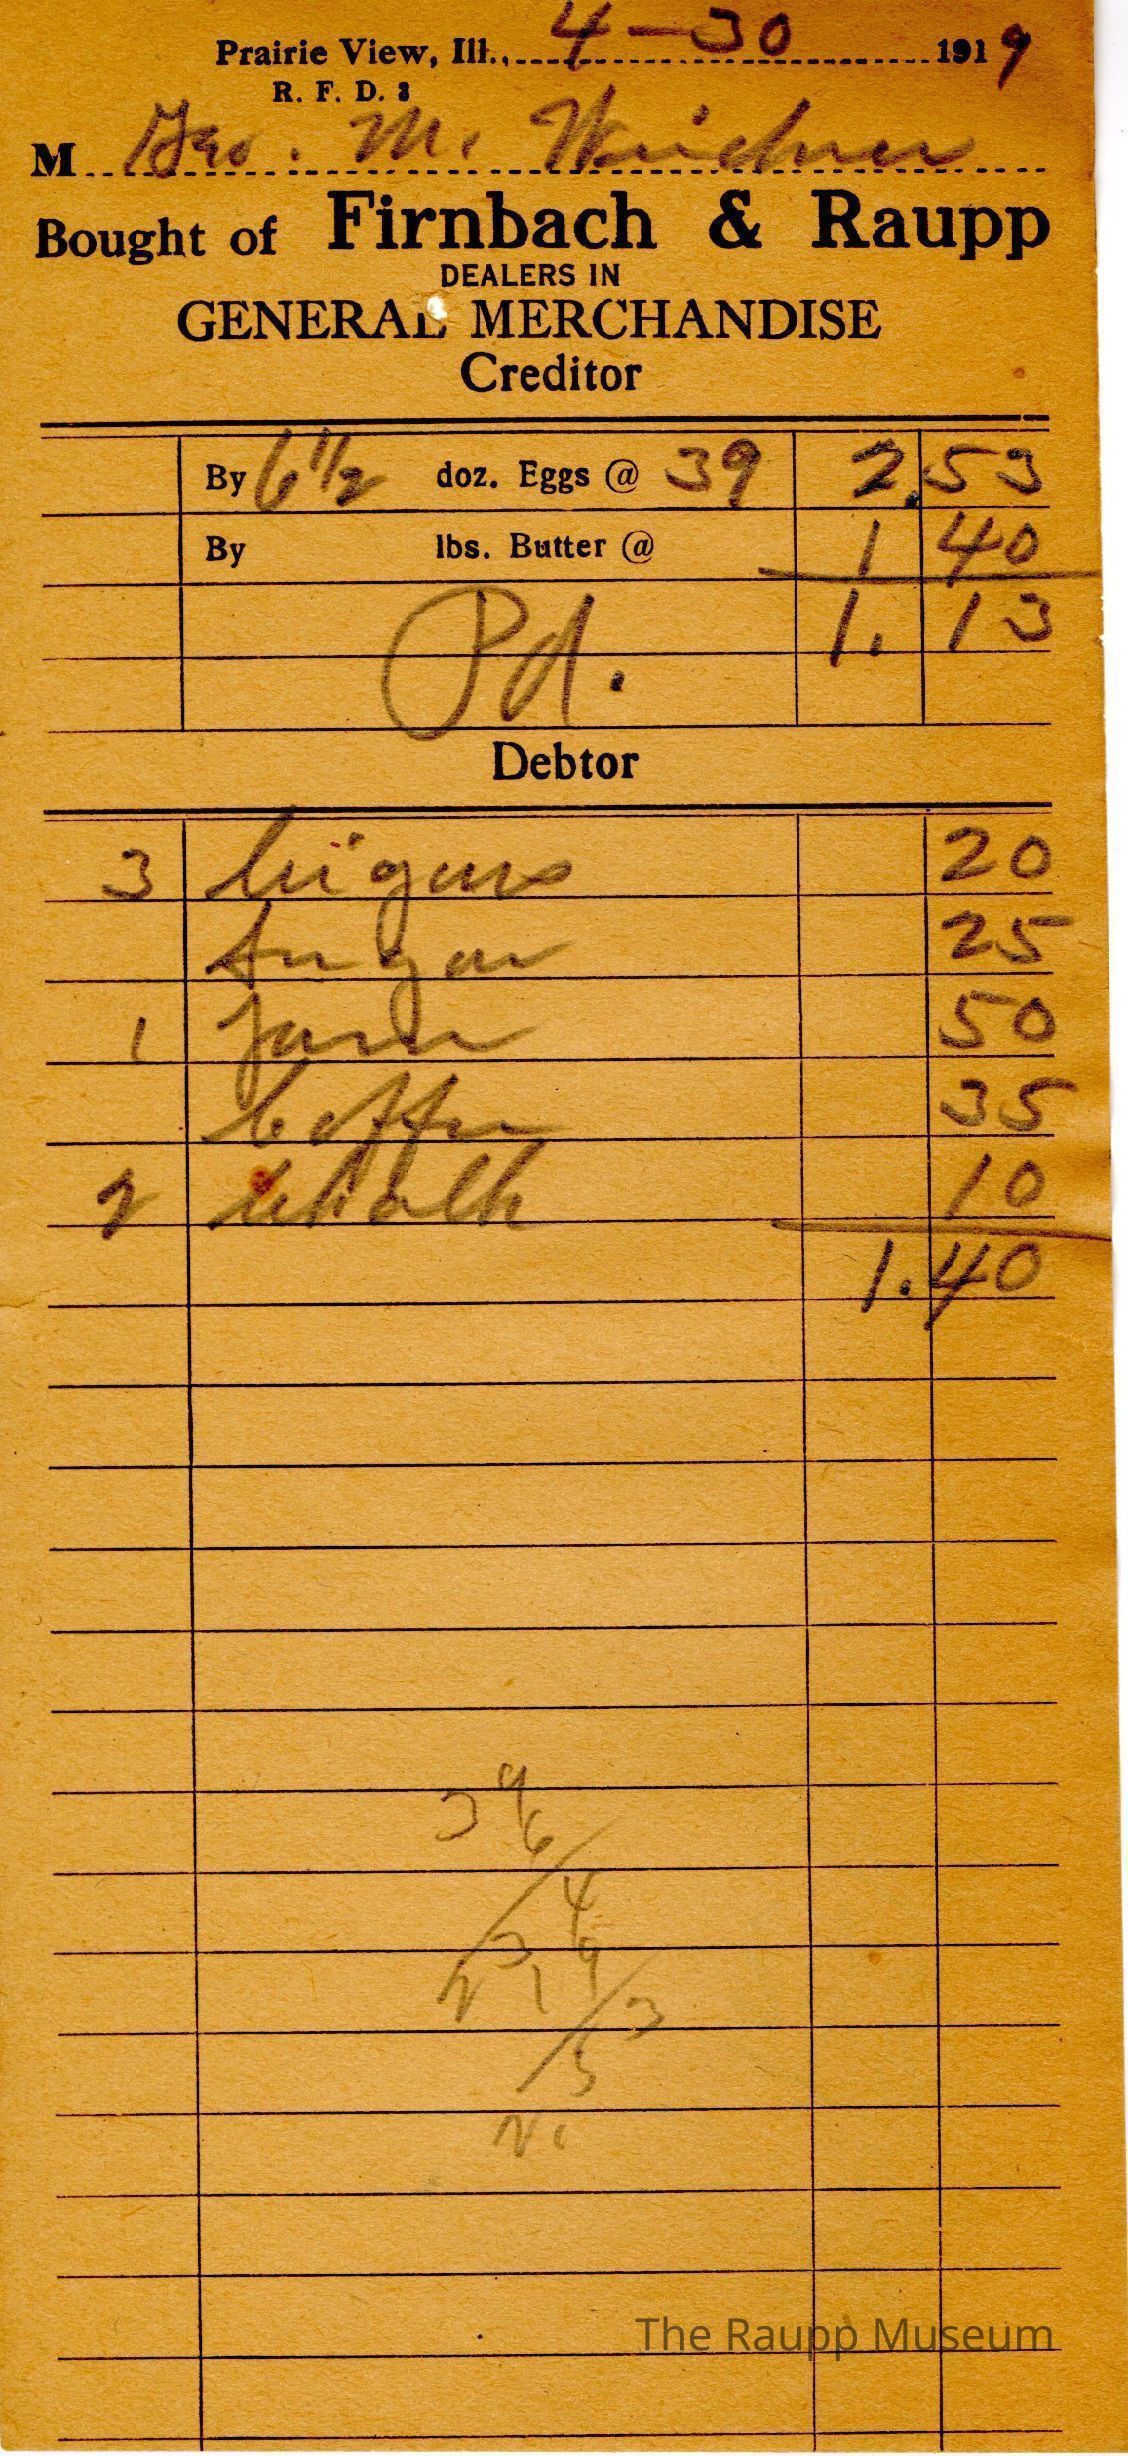 Prairie View, Ill., 4-30 1919
R. F. D. 3
M Geo. M. Weidner
Bought of Firnbach & Raupp
DEALERS IN
GENERAL MERCHANDISE
Creditor
By 6 1/2 doz. Eggs @ 39 2.53
By lbs. Butter @ 1 40
Pd. 1.13
Debtor
3 Cigars 20
Sugar 25
1 50
Coffee 35
2 10
1.40
39
6
4
3 9
2 1 3
5
The Raupp Museum